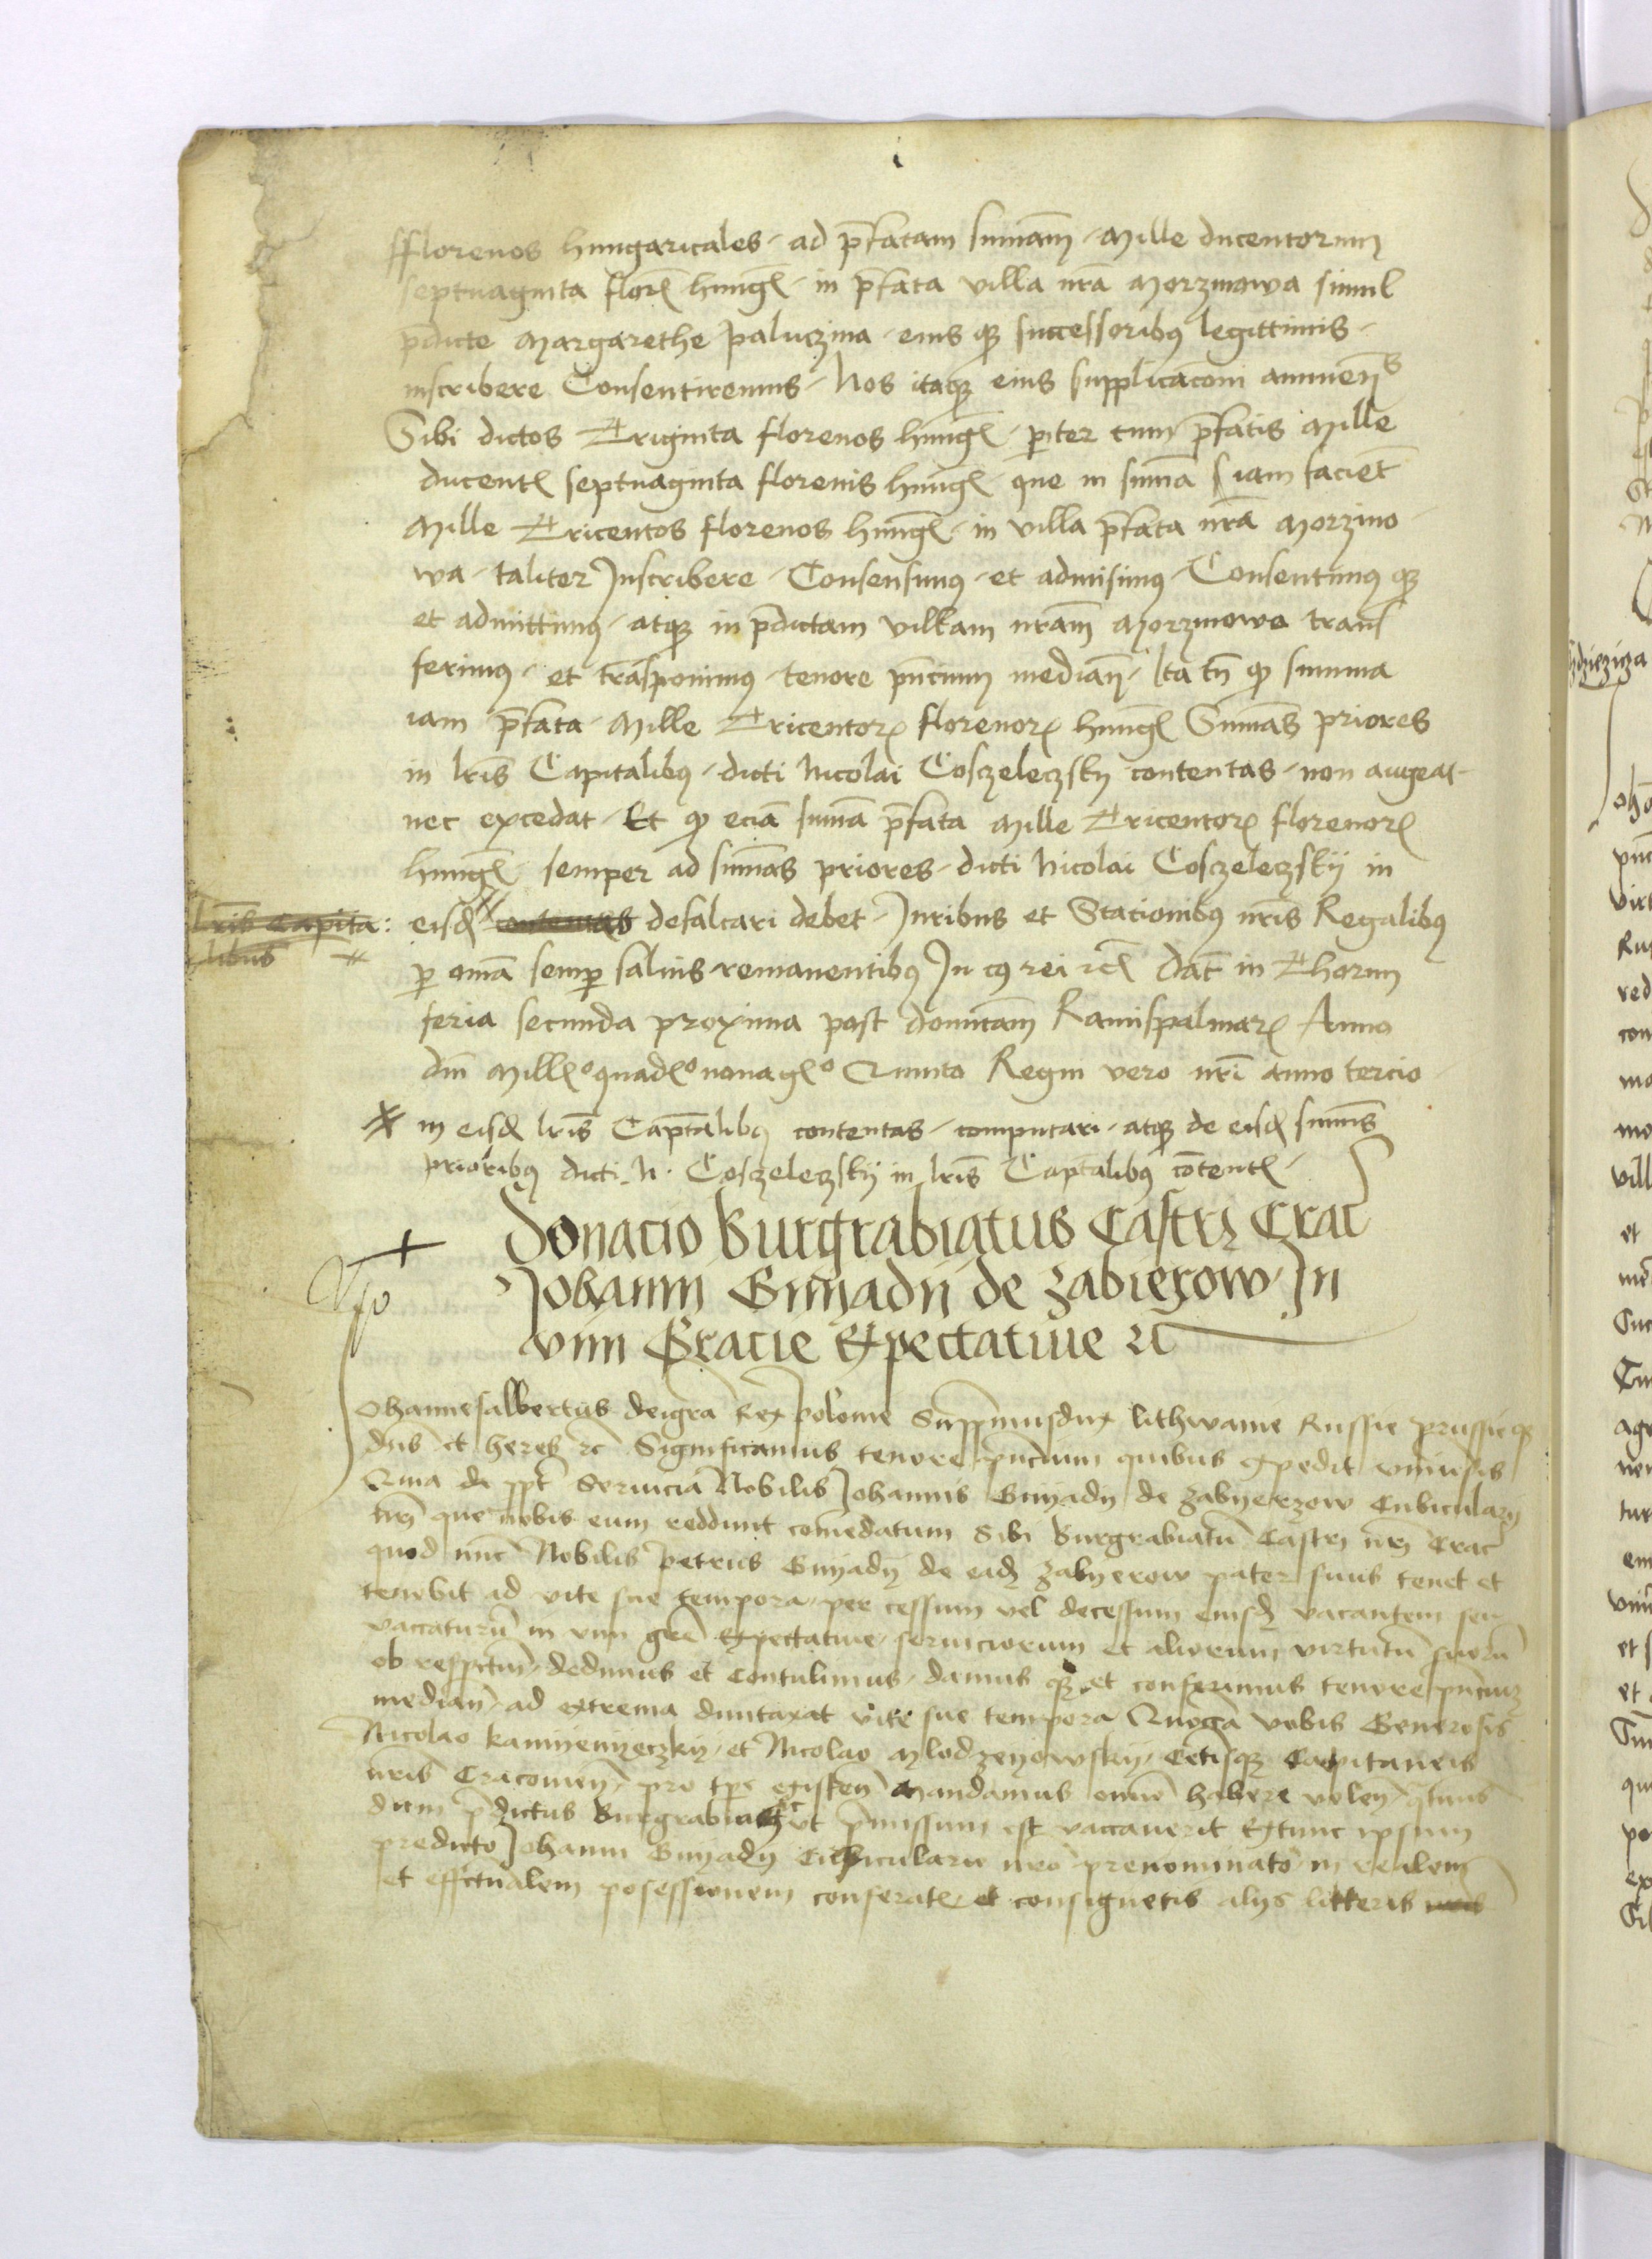 fflorenos hungaricales ad p̄fatam sum̄am Mille ducentorum
septuaginta flor̄ hunḡ in p̄fata villa nr̄a Morzinowa simul
p̄dicte Margarethe paluczina eius qꝫ successoribꝰ legittimis
inscribere Consentiremus Nos itaqꝫ eius supplicaconi annuen̄s
Sibi dictos Triginta florenos hunḡ pariter cum p̄fatis Mille
ducent̄ septuaginta florenis hunḡ que in sum̄a iam facient
Mille Tricentos florenos hunḡ in villa p̄fata nr̄a Morzino
wa taliter Inscribere Consensimꝰ et admisimꝰ Consentimꝰ qꝫ
et admittimꝰ atqꝫ in p̄dictam villam nr̄am Morzinowa trans
ferimꝰ et trāsponimꝰ tenore pn̄cium median̄ Ita tn̄ qꝫ summa
iam p̄fata Mille Tricentoꝝ florenoꝝ hunḡ Sum̄as priores
in lr̄is Capitalibꝰ dicti Nicolai Cosczeleczsky contentas non augeat
nec excedat Et qꝫ eciā sum̄a p̄fata Mille Tricentoꝝ florenoꝝ
hunḡ semper ad sum̄as priores dicti Nicolai Cosczeleczskij in
lr̄is Capita:
libus
eisd̄ contentas defalcari debet Juribus et Stacionibꝰ nr̄is Regalibꝰ
ꝑ om̄a semꝑ saluis remanentibꝰ In cꝰ rei rc̄ Dat̄ in Thorun
feria secunda proxima post domīcam Ramispalmaꝝ Anno
dn̄i Mill̄o quad̄o nonaḡo Quinto Regni vero nr̄i anno tercio
in eisd̄ lr̄is Capitalibꝰ contentas computari atqꝫ de eisd̄ sum̄is
prioribꝰ dicti N. Cosczeleczskij in lr̄is Capitalibꝰ cōtent̄
Donacio Burgrabiatus Castri Crac
Johanni Gnyadij de Zabierzow In
vim Gracie Expectatiue rc
Johannesalbertus deigra Rex polonie Supp̄musdux lithwanie Russie prussieqꝫ
dn̄s et heres rc̄ Significamus tenore pn̄cium quibus expedit vniuersis
Quia de ppt̄ Seruiciā Nobilis Johannis Gnyady de Zabyerzow Cubicularij
nr̄i que nobis eum reddunt com̄edatum Sibi Burgrabiatū Castri nr̄i Crac
quod nūc Nobilis Petrus Gnyady de eadē Zabyerow pater suus tenet et
tenebit ad vite sue tempora per cessum vel decessum eiusdē vacantem seu
vaccaturū in vim grē Expectatiue seruiciorum et aliorum virtutū suorū
ob respectum dedimus et contulimus damus qꝫ et conferimus tenore pn̄cium
median̄ ad extrema duntaxat vite sue tempora Quoca vobis Generosis
Nicolao Kamyenyeczky et Nicolao Mlodzeyowskij Cetisqꝫ Capitaneis
nr̄is Cracouien̄ pro tꝑe existen̄ Mandamus om̄ino habere volen̄ q̄tinus
dum p̄dictus Burgrabiatus vt p̄missum est vaccauerit Extunc ipsum
predicto Johanni Gnyady Cubiculario nr̄o prenominato in realem
et effectualem posessionem conferatꝭ et consignetis alijs litteris